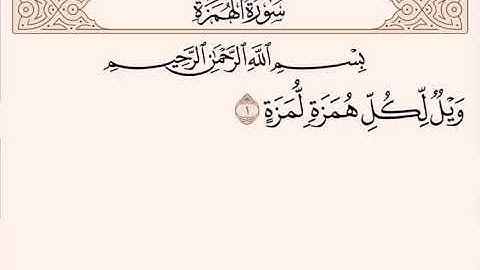 سُورَةُ الهُمَزَةِ
بِسْمِ ٱللَّهِ ٱلرَّحْمَٰنِ ٱلرَّحِيمِ
وَيْلٌ لِّكُلِّ هُمَزَةٍ لُّمَزَةٍ ١